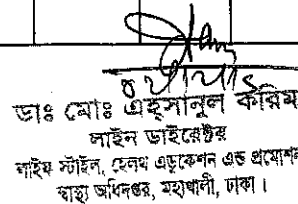 ডাঃ মোঃ এহসানুল করিম
লাইন ডাইরেক্টর
লাইফ স্টাইল, হেলথ এডুকেশন এন্ড প্রমোশন
স্বাস্থ্য অধিদপ্তর, মহাখালী, ঢাকা।